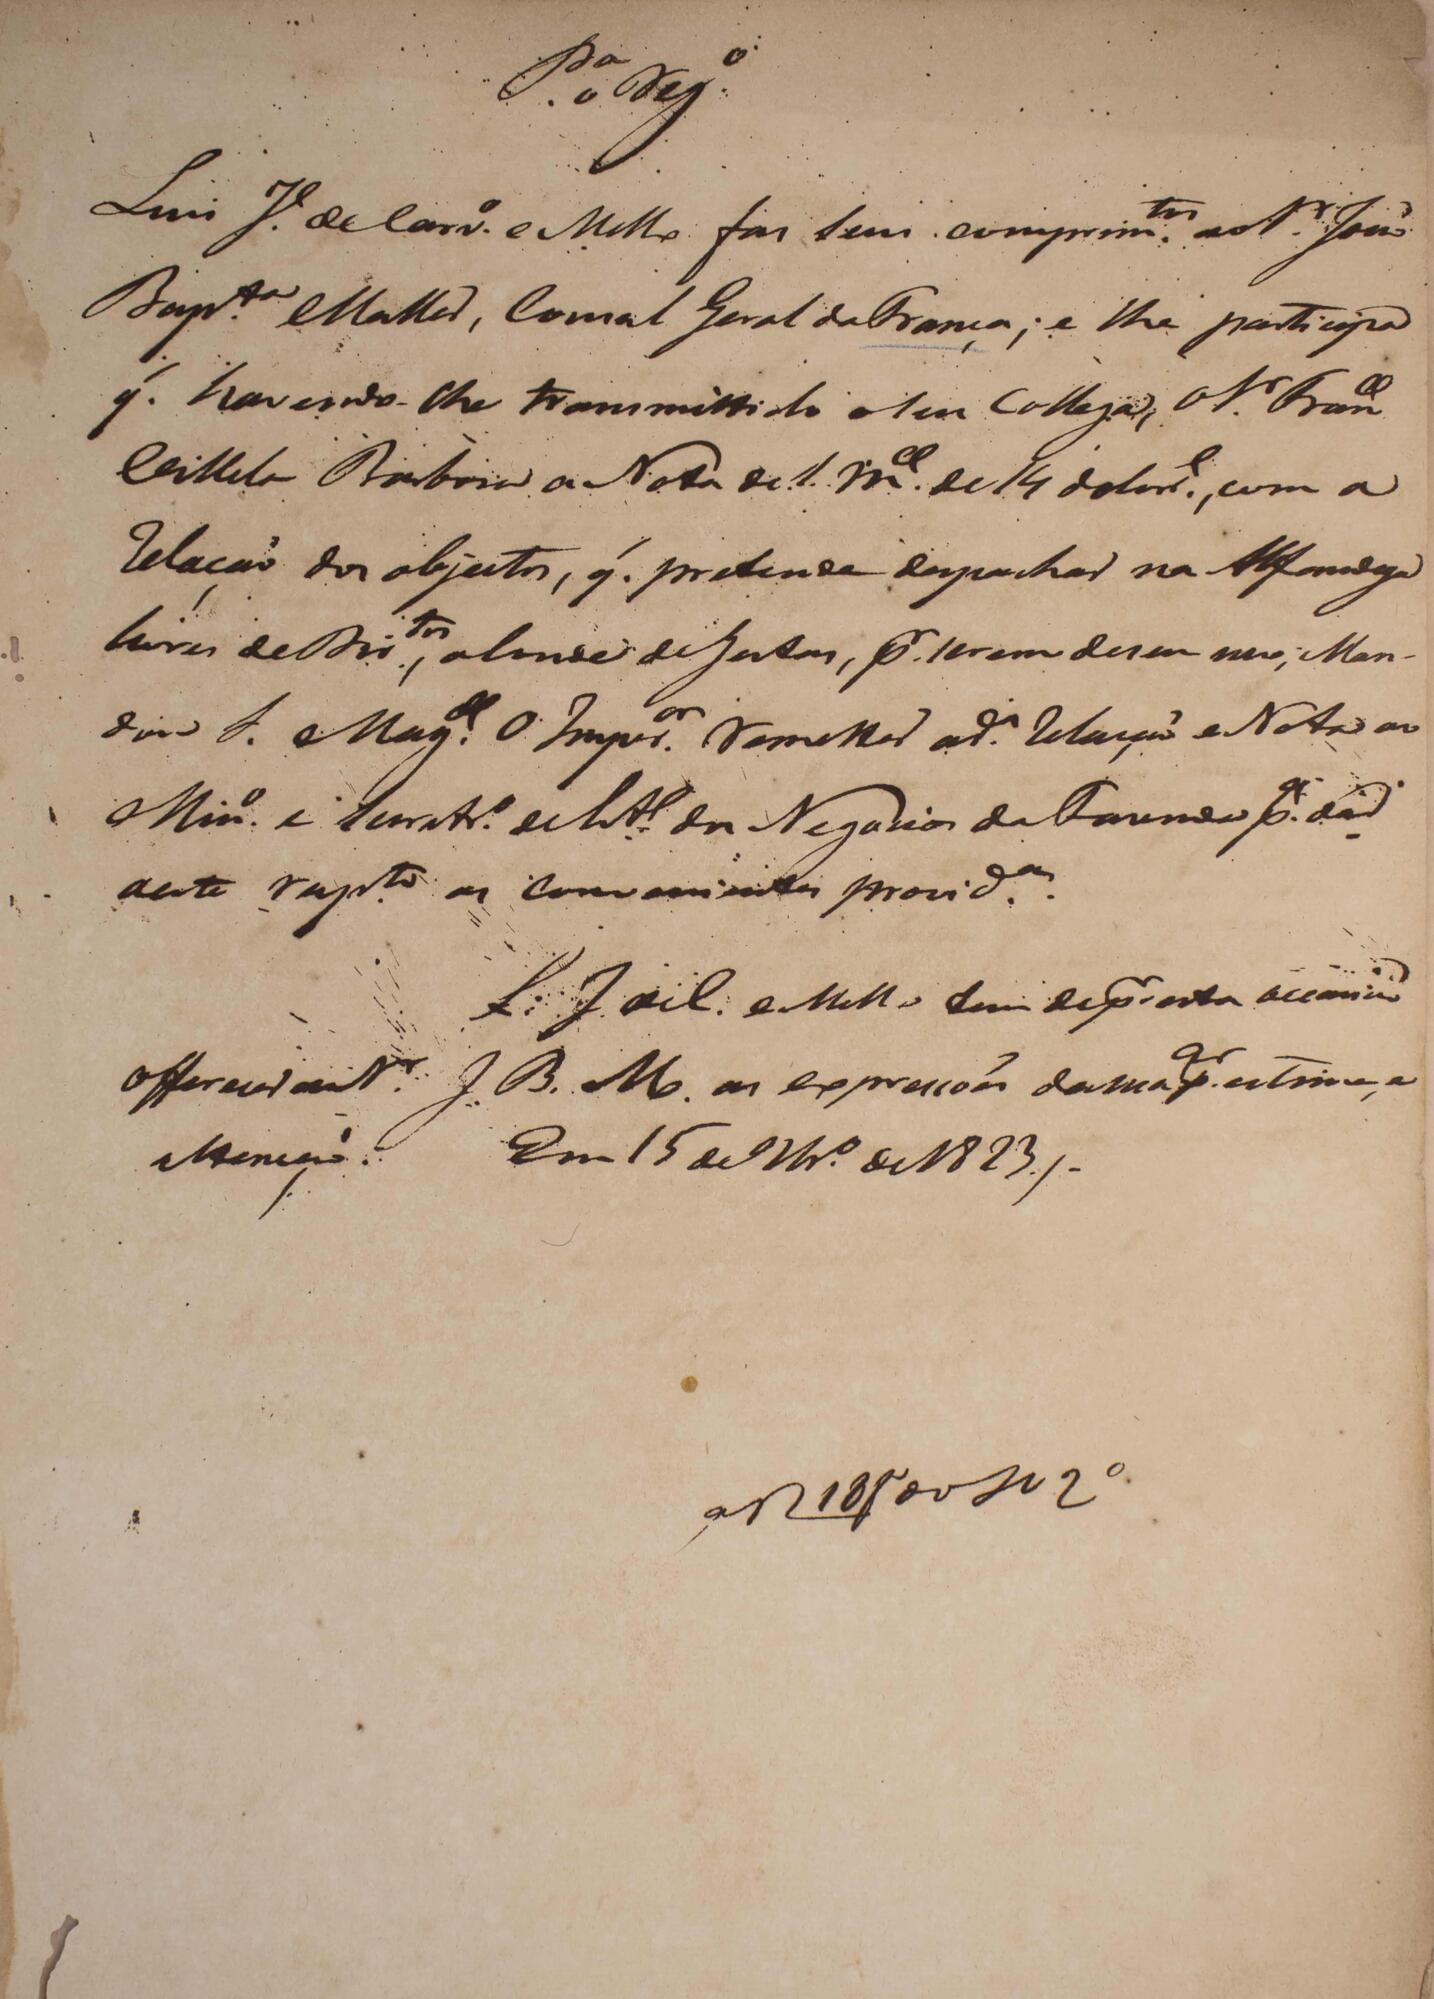 P.ª o Reg.º
Luis J.e de Carv.º e Mello faz seus comprim.tos ao Sr. João
Bapt.ta Maller, Consul Geral da França; e lhe participa
q. havendo-lhe transmittido o seu Collega, o Sr. Fran.co
Villela Barboza a Nota de S. M.ce de 14 do corr.e, com a
Relação dos objectos, q. pretende despachar na Alfandega
livres de Dir.tos, alem de gastos, p.r serem de seu uso; Man-
dou S. Mag.de O Imper.or remetter a d.a Relação e Nota ao
Min.º e Secret.º de Est.º dos Negocios da Fazenda p.a dar
a este resp.to as convenientes provid.as.
L. J. de C. e Mello serve-se de p.r esta occasião
offerecer ao Sr. J. B. M. as expressões da sua p. estima, e
attenção. Em 15 de 9br.º de 1823./-
do 2º